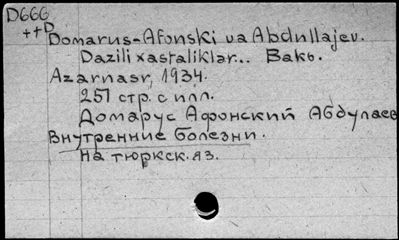 D666
++D
Domarus-Afonski va Abdullajev.
Dazili xastaliklar... Bakь.
Azarnasr, 1934.
251 стр. с илл.
Домарус Афонский Абдулаев
Внутренние болезни.
на тюркск. яз.